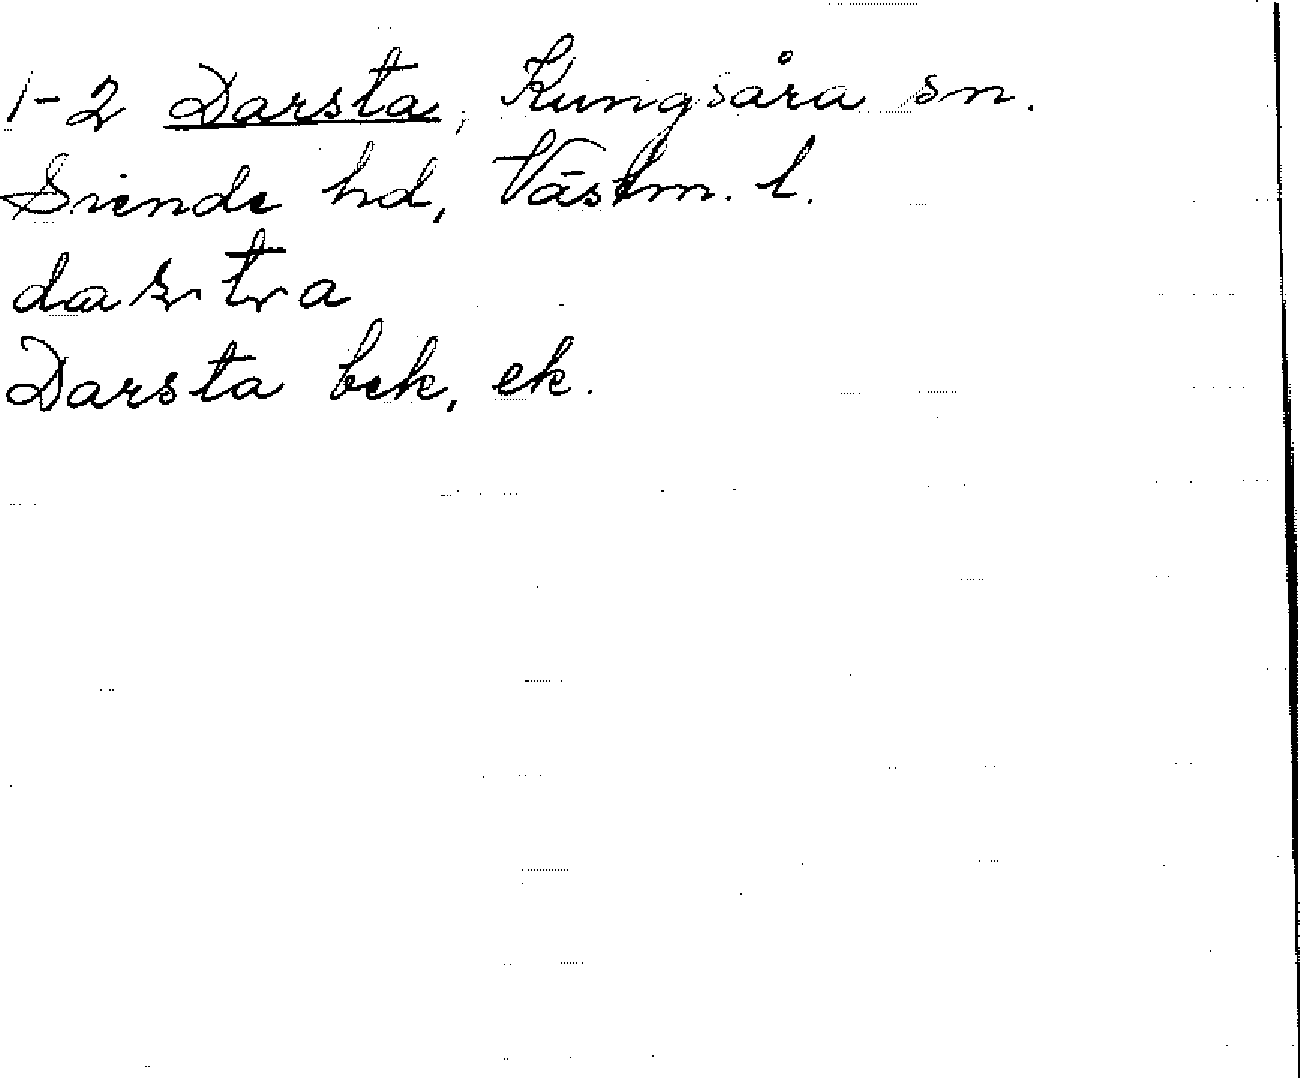 1-2 Darsta, Kungsåra sn.
Siende hd, Västm. l.
Darsta bck, ek.